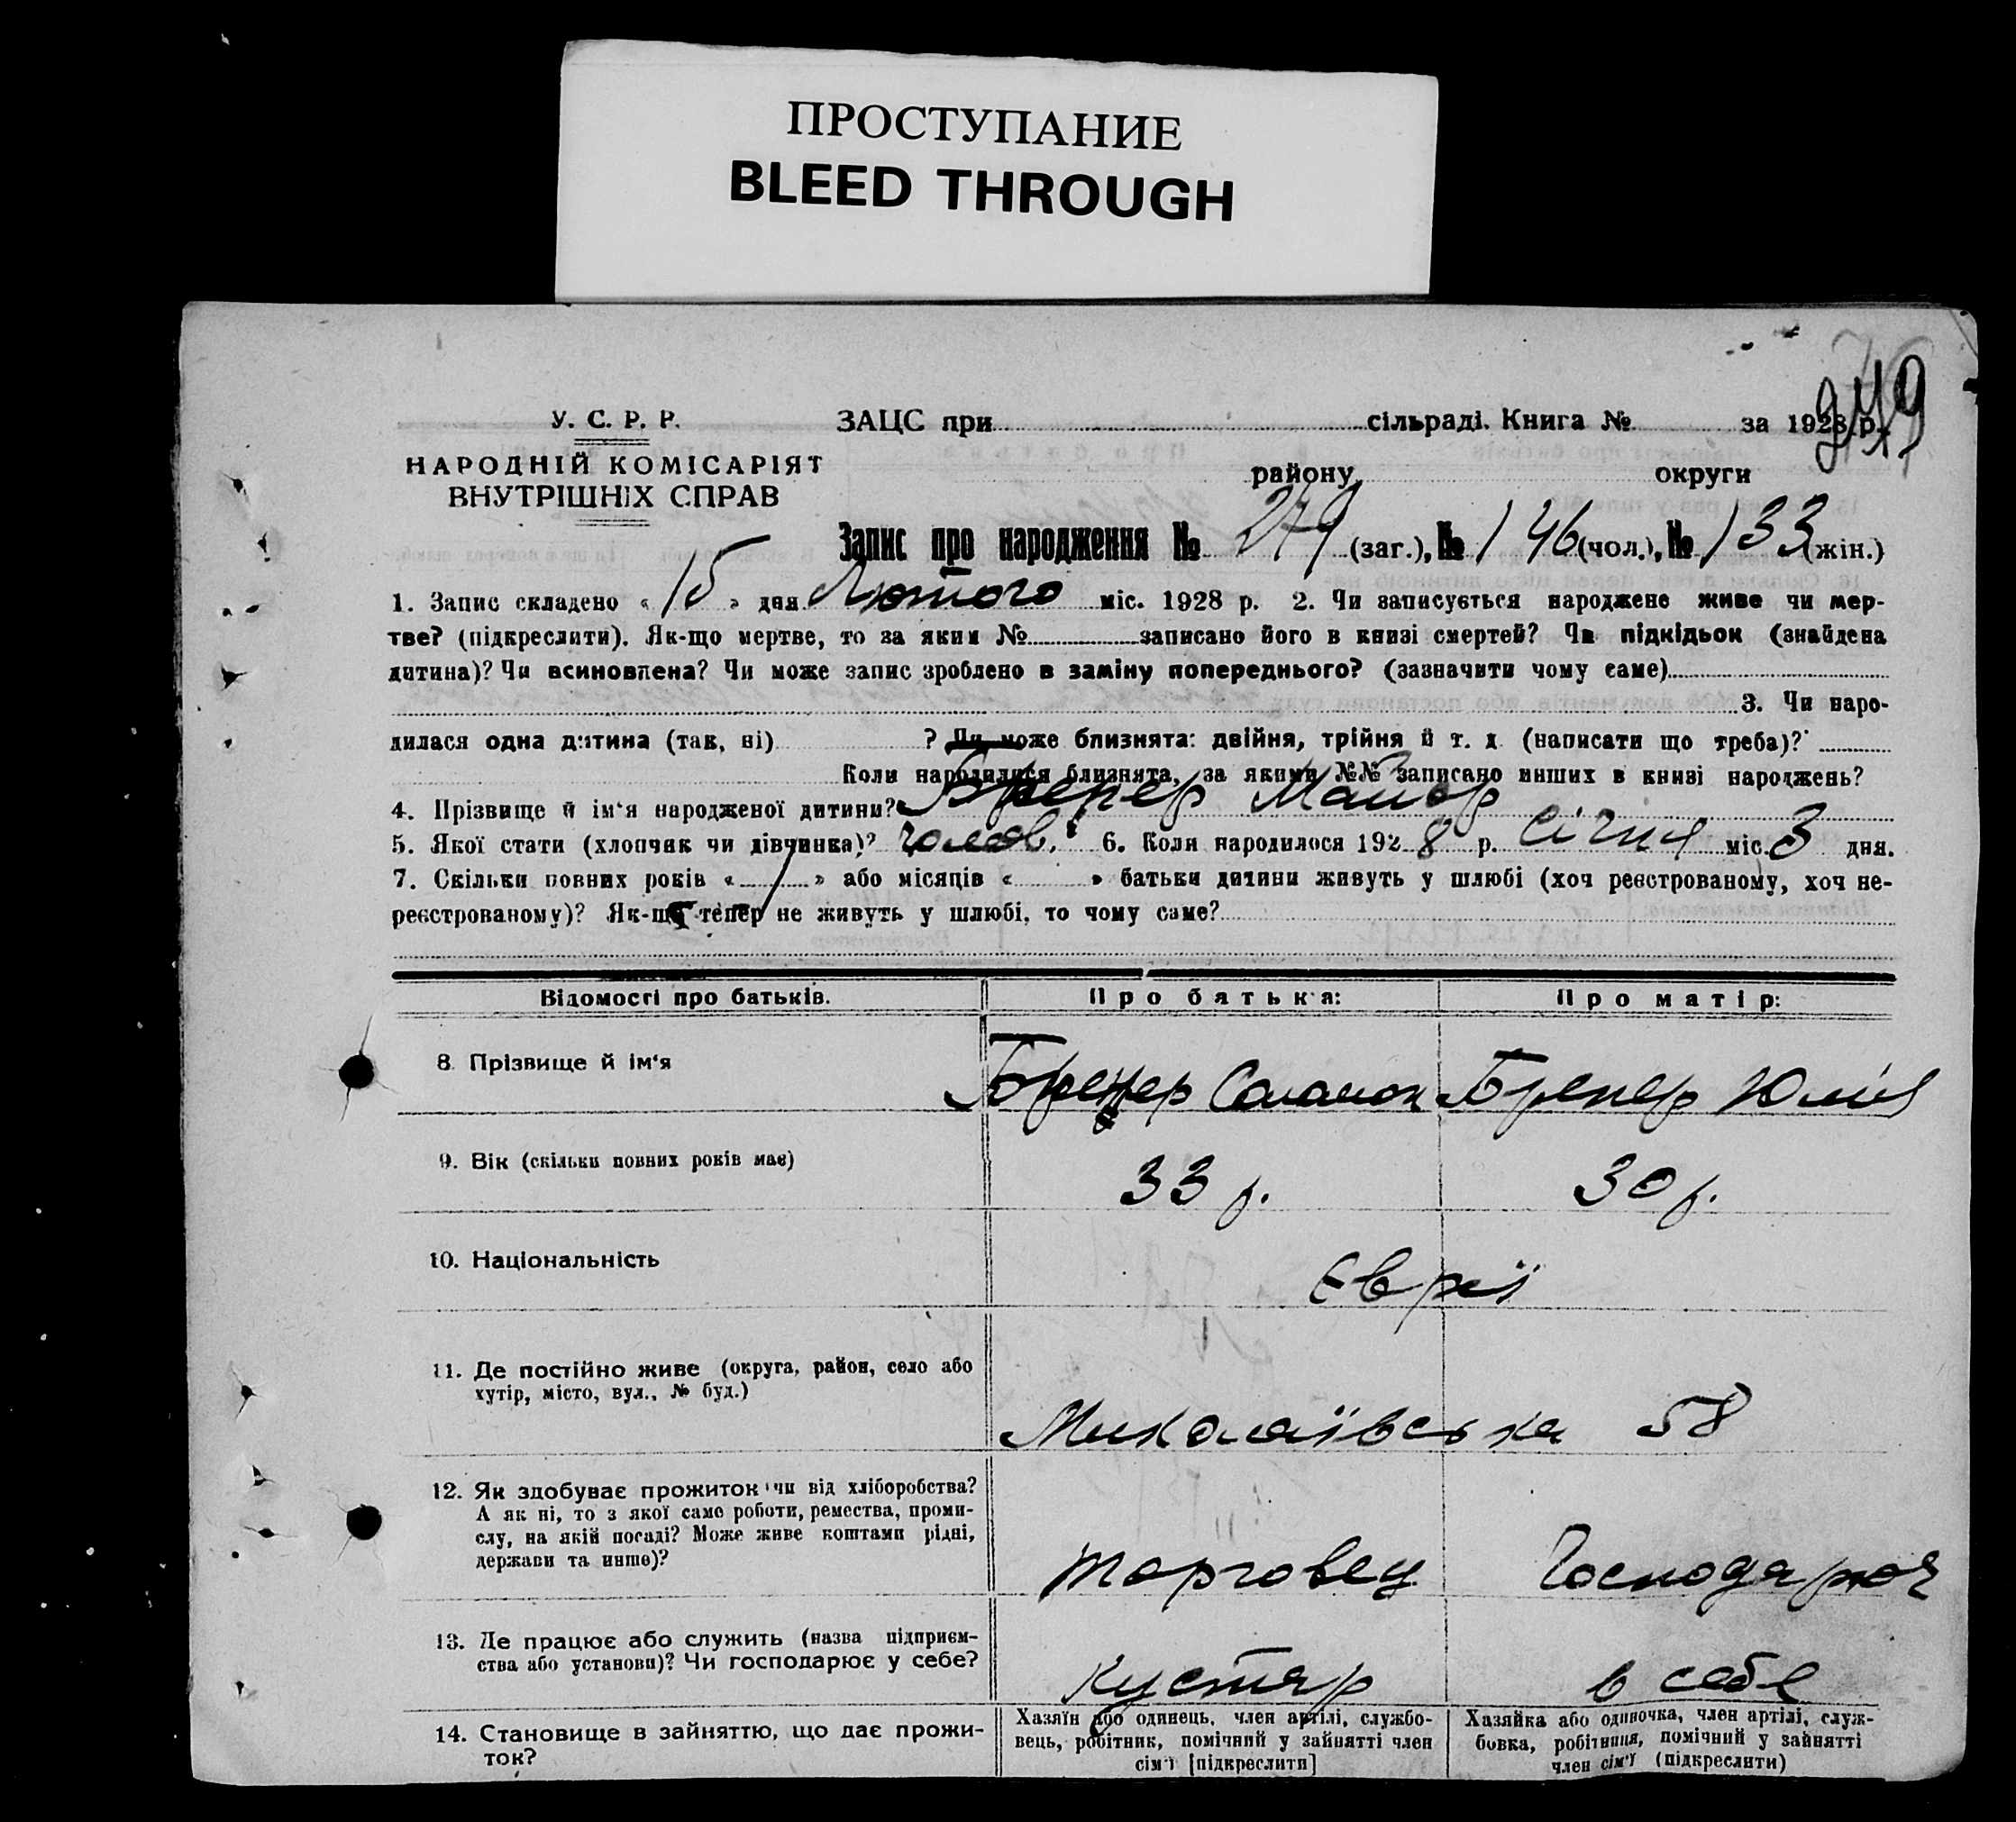 ПРОСТУПАНИЕ
BLEED THROUGH
249
У. С. Р. Р. ЗАЦС при сільраді. Книга № за 1928 р.
НАРОДНІЙ КОМІСАРІЯТ
ВНУТРІШНІХ СПРАВ
району округи
Запис про народження № 279 (заг.), № 146 (чол.), № 133 (жін.)
1. Запис складено « 15 » дня Лютого міс. 1928 р. 2. Чи записується народжене живе чи мер-
тве? (підкреслити). Як-що мертве, то за яким № записано його в книзі смертей? Чи підкідьок (знайдена
дитина)? Чи всиновлена? Чи може запис зроблено в заміну попереднього? (зазначити чому саме)
3. Чи наро-
дилася одна дитина (так, ні) ? Чи може близнята: двійня, трійня й т. д. (написати що треба)?
Коли народилися близнята, за якими №№ записано инших в книзі народжень?
4. Прізвище й ім'я народженої дитини? Бренер Майор
5. Якої стати (хлопчик чи дівчинка)? чолов. 6. Коли народилося 1928 р. Січня міс. 3 дня.
7. Скільки повних років « » або місяців « » батьки дитини живуть у шлюбі (хоч реєстрованому, хоч не-
реєстрованому)? Як-що тепер не живуть у шлюбі, то чому саме?
Відомості про батьків. Про батька: Про матір:
8. Прізвище й ім'я Бренер Соломон Бренер Юлія
9. Вік (скільки повних років має) 33 р. 30 р.
10. Національність Євреї
11. Де постійно живе (округа, район, село або
хутір, місто, вул., № буд.)
Миколаївська 58
12. Як здобуває прожиток чи від хліборобства?
А як ні, то з якої саме роботи, ремества, проми-
слу, на якій посаді? Може живе коштами рідні,
держави та инше)?
торговец Господарює
13. Де працює або служить (назва підприєм-
ства або установи)? Чи господарює у себе?
Кустяр в себе
14. Становище в зайняттю, що дає прожи-
ток?
Хазяїн або одинець, член артілі, службо-
вець, робітник, помічний у зайнятті член
сім'ї [підкреслити]
Хазяйка або одиночка, член артілі, служ-
бовка, робітниця, помічний у зайнятті
член сім'ї (підкреслити)